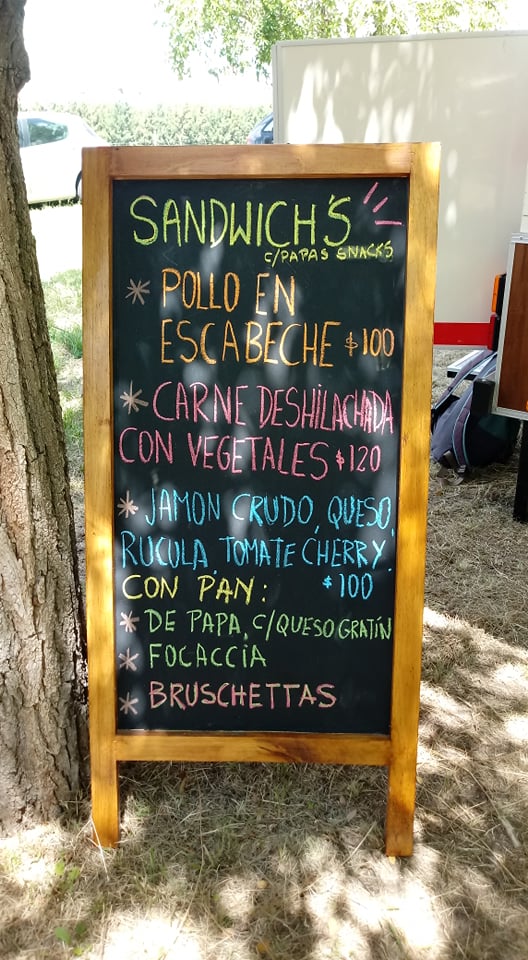 SANDWICH'S
C/PAPAS SNACKS
* POLLO EN
ESCABECHE $100
* CARNE DESHILACHADA
CON VEGETALES $120
* JAMON CRUDO, QUESO,
RUCULA, TOMATE CHERRY.
CON PAN: $100
* DE PAPA, C/QUESO GRATIN
* FOCACCIA
* BRUSCHETTAS